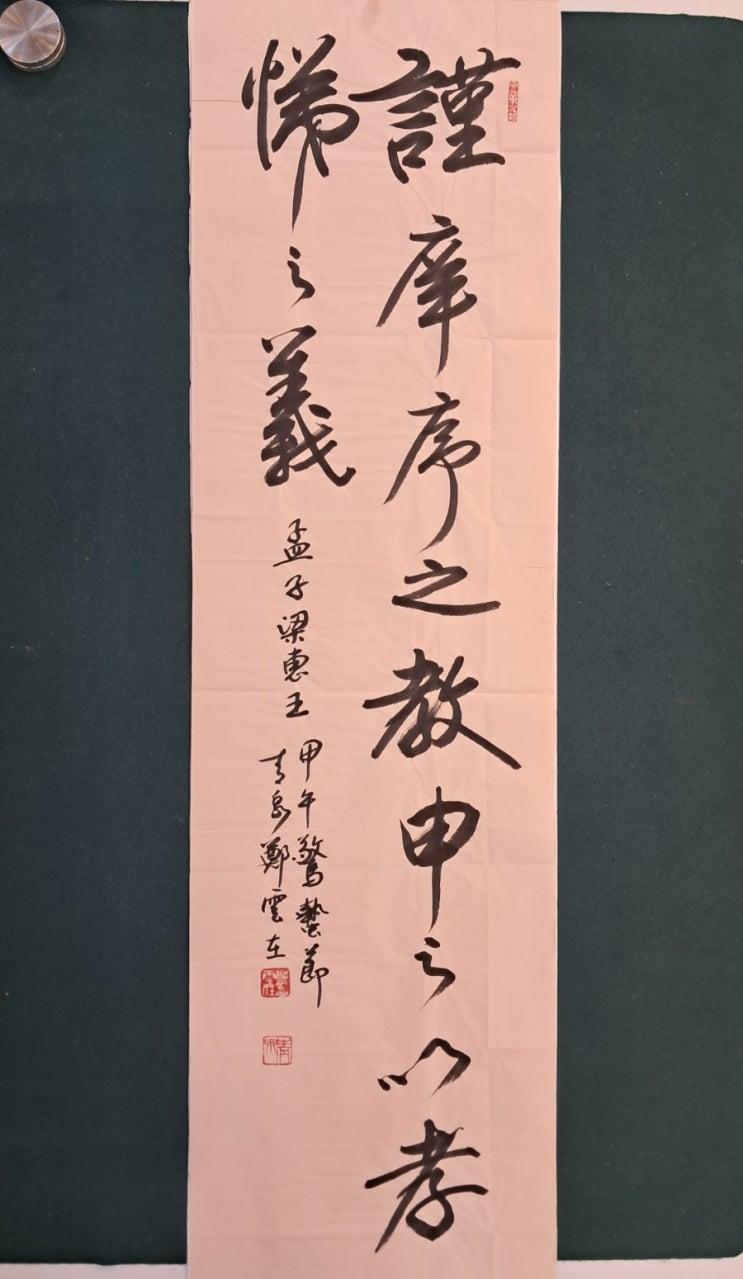 謹庠序之教申之以孝
悌之義
孟子梁惠王
甲午驚蟄節
青泉鄭雲在